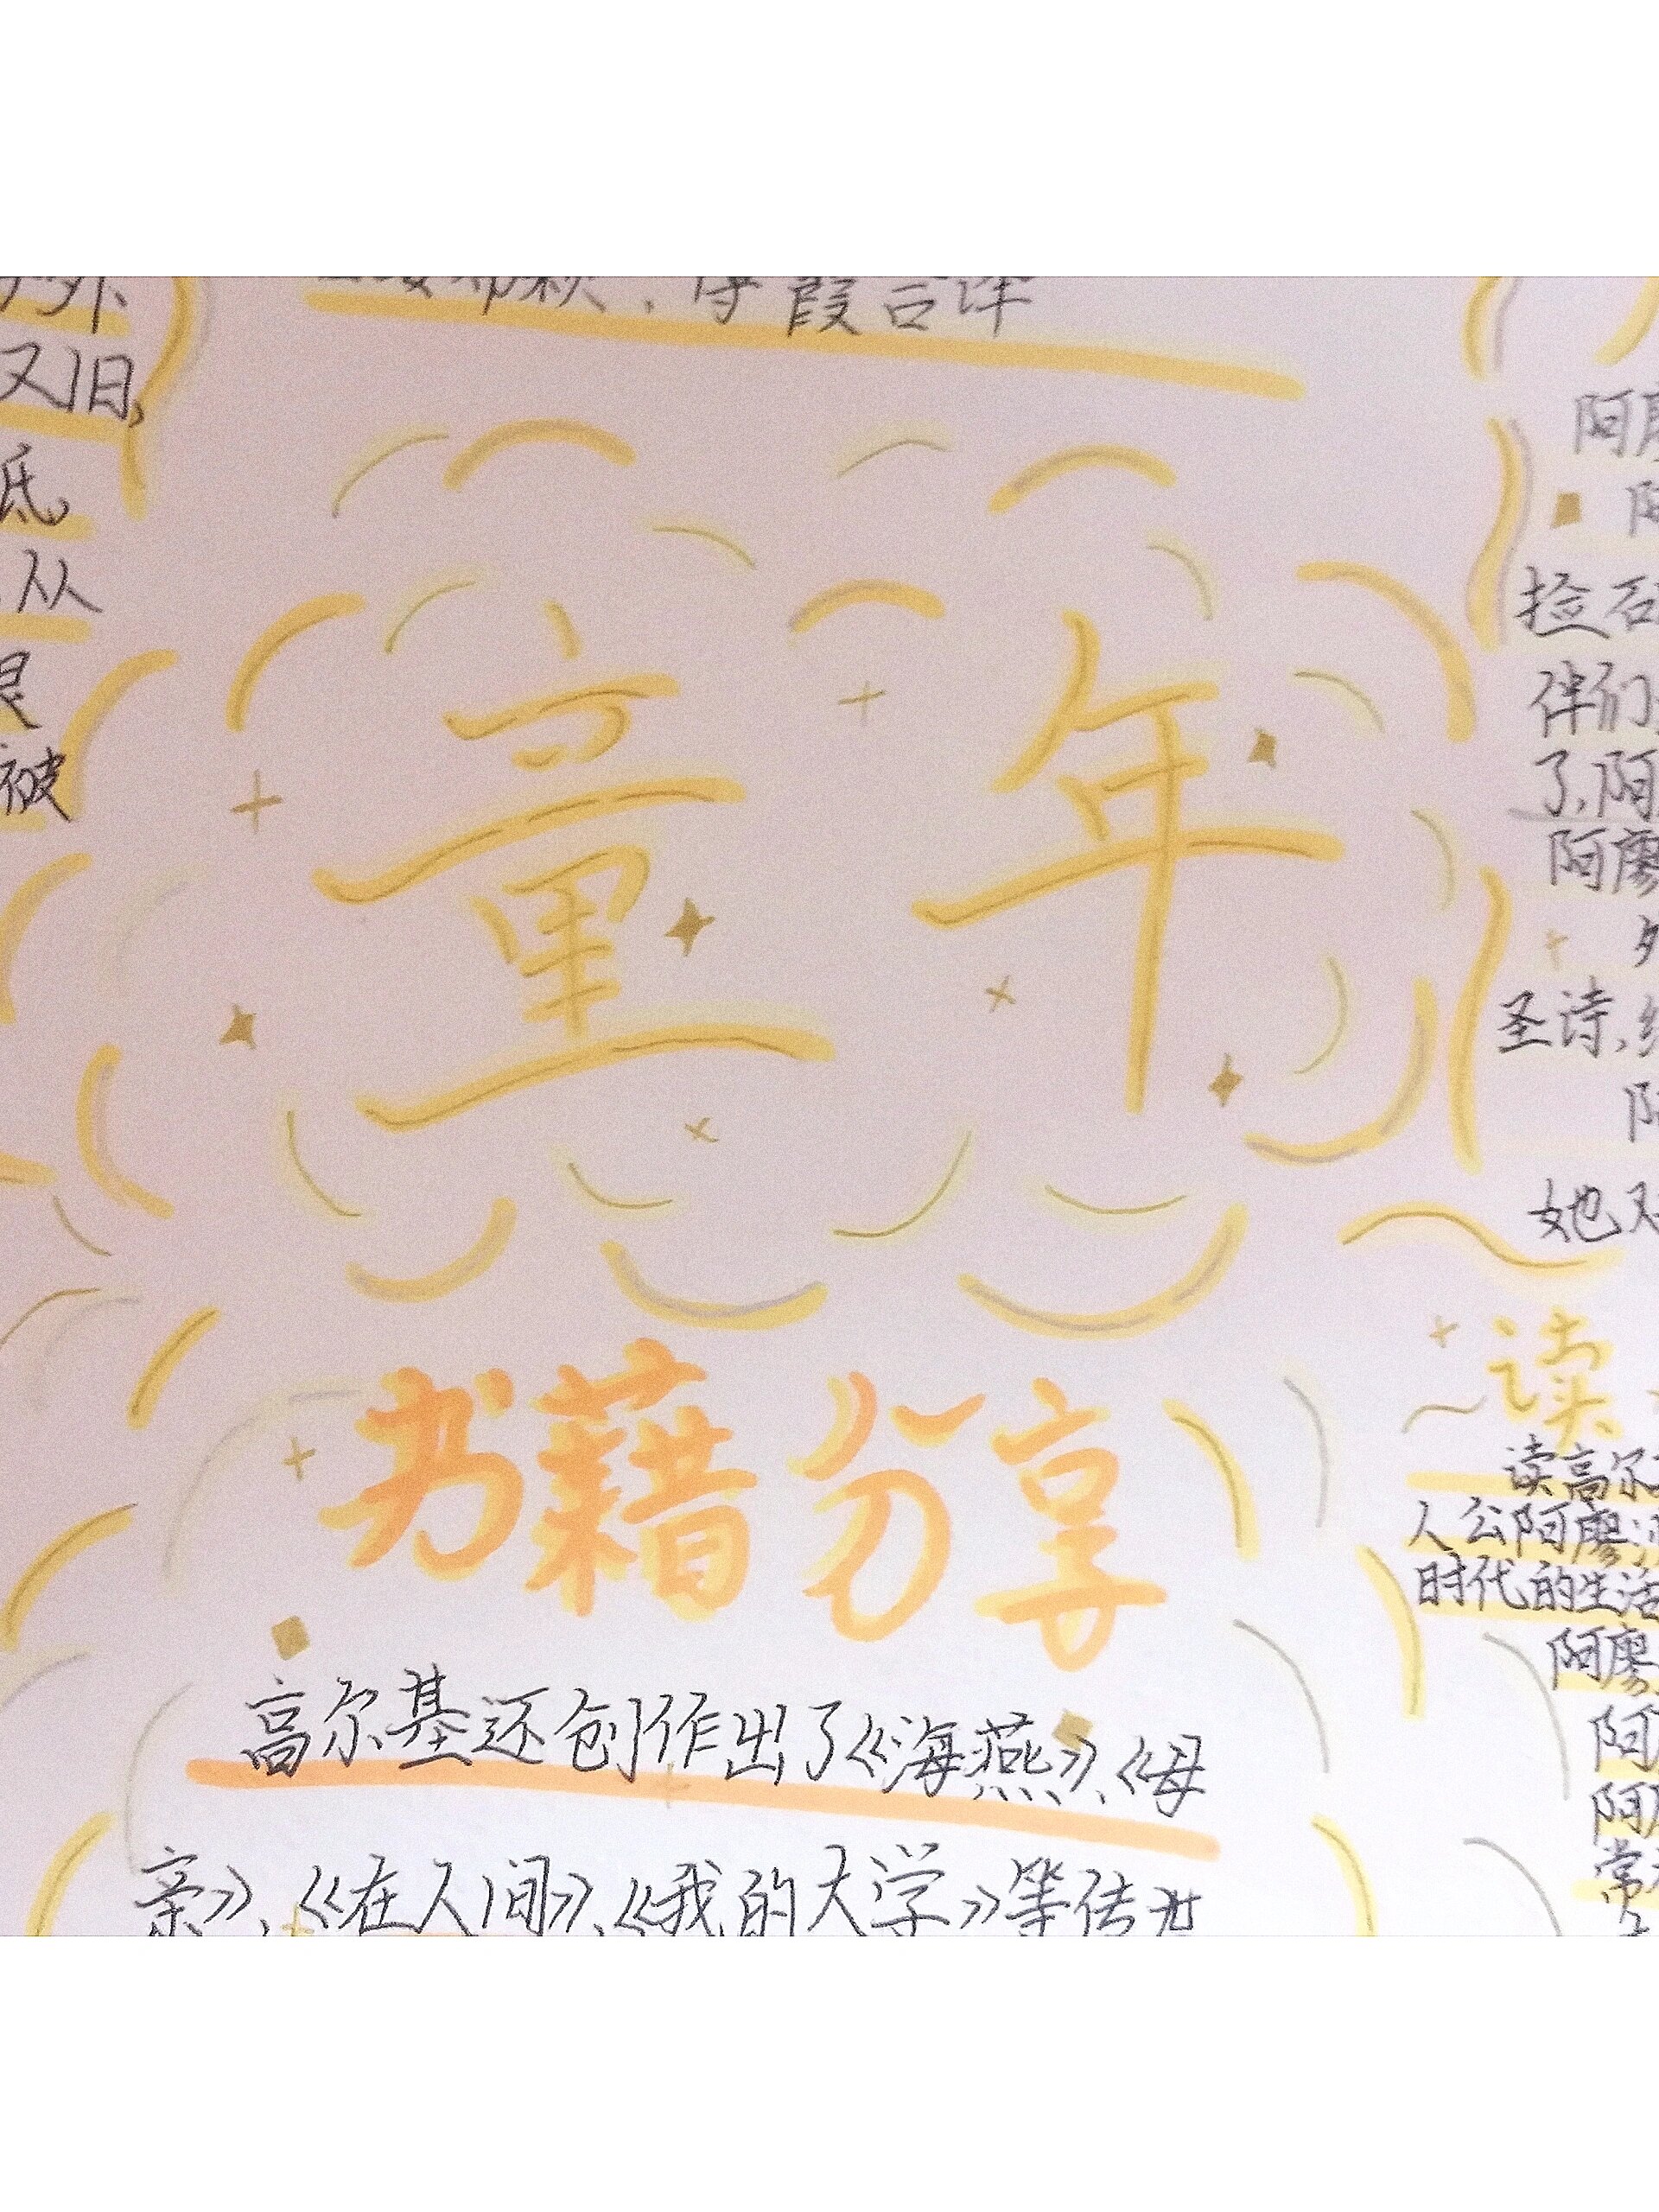 霞合译
又旧,
低,
从
被
童年
书籍分享
高尔基还创作出了《海燕》、《母
亲》、《在人间》、《我的大学》等传世
阿
捡石
伴们
了,阿
阿廖
圣诗,
阿
她又
读
读高尔
人公阿廖
时代的生活
阿廖
阿
阿
常